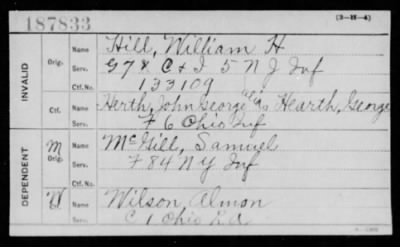 187833
(3-H-4)
INVALID
Orig.
Name Hill, William H
Serv. G 7 & C & I 5 N J Inf
Ctf. No. 133109
Ctf.
Name Herth, John George "a" as Hearth, George
Serv. F 6 Ohio Inf
DEPENDENT
M
Orig.
Name McGill, Samuel
Serv. F 84 N Y Inf
Ctf. No.
Name Wilson, Almon
Serv. C 1 Ohio L A